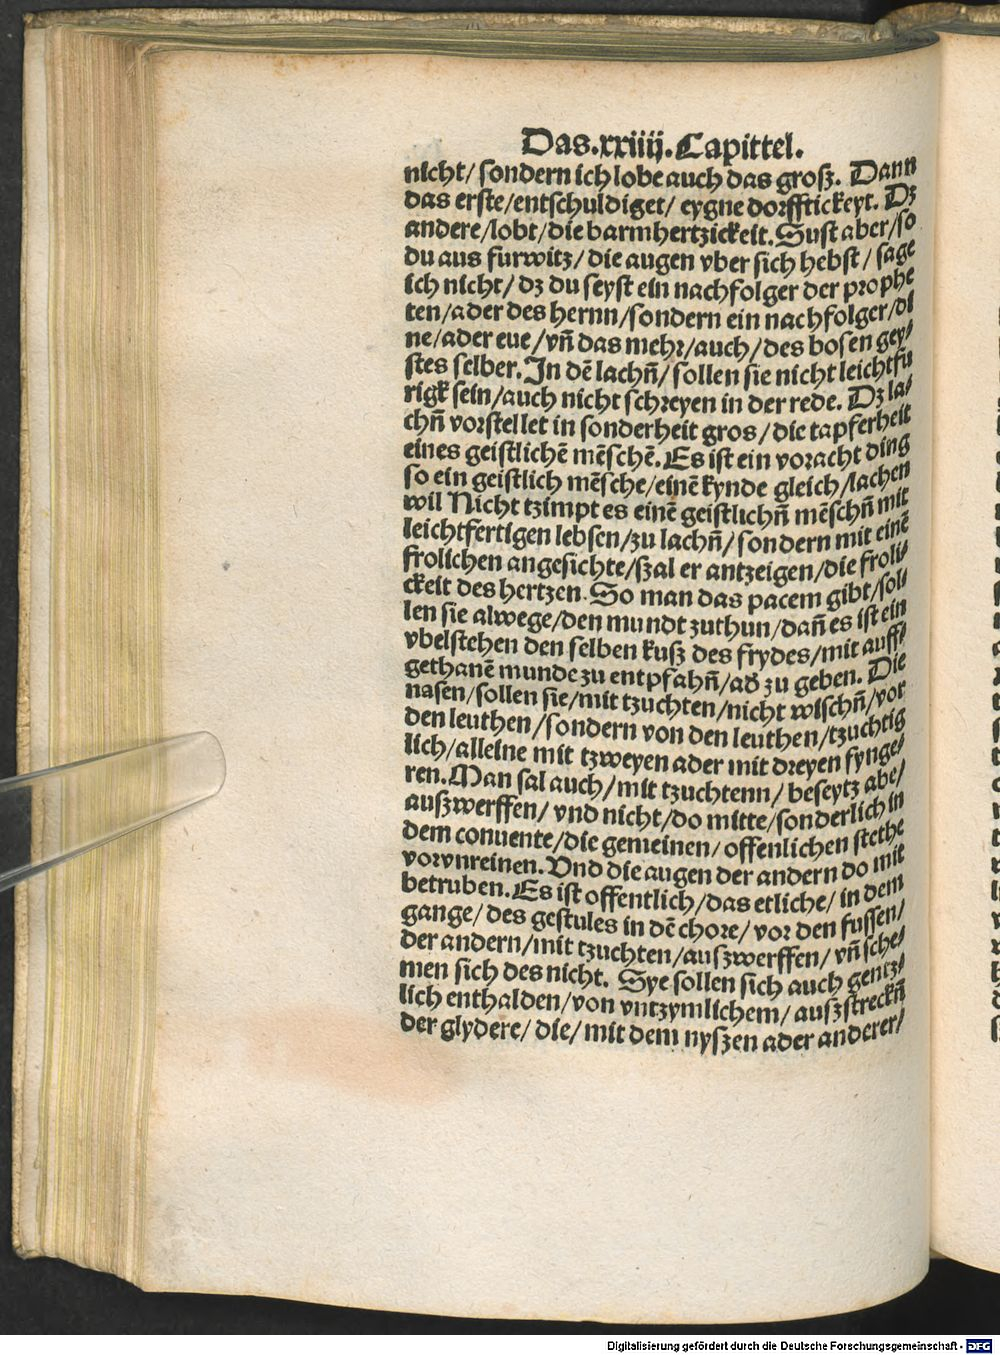 Das.xxiiij.Capittel.
nicht/ sondern ich lobe auch das groß. Dann
das erste/entschuldiget/ eygne dorfftickeyt. Dz
andere/lobt/die barmhertzickeit. Sust aber/so
du aus furwitz/ die augen vber sich hebst/ sage
ich nicht/ dz du seyst ein nachfolger der prophe
ten/ader des hernn/sondern ein nachfolger/di
ne/ader eue/vñ das mehr/auch/des bosen gey/
stes selber. In dē lachñ/ sollen sie nicht leichtfu
rigk sein/auch nicht schreyen in der rede. Dz la/
chñ vorstellet in sonderheit gros/die tapferheit
eines geistlichē mēschē. Es ist ein voracht ding
so ein geistlich mēsche/einē kynde gleich/lachen
wil Nicht tzimpt es einē geistlichñ mēschñ mit
leichtfertigen lebsen/zu lachñ/ sondern mit einē
frolichen angesichte/ßal er antzeigen/die froli/
ckeit des hertzen. So man das pacem gibt/sol/
len sie alwege/den mundt zuthun/dañ es ist ein
vbelstehen den selben kuß des frydes/mit auff/
gethanē munde zu entpfahñ/ad zu geben. Die
nasen/sollen sie/mit tzuchten/nicht wischñ/vor
den leuthen/sondern von den leuthen/tzuchtig
lich/alleine mit tzweyen ader mit dreyen fynge/
ren. Man sal auch/mit tzuchtenn/ beseytz abe/
außwerffen/ vnd nicht/do mitte/sonderlich in
dem conuente/die gemeinen/ offenlichen stethe
vorvnreinen. Vnd die augen der andern do mit
betruben. Es ist offentlich/das etliche/ in dem
gange/ des gestules in dē chore/ vor den fussen/
der andern/mit tzuchten/außwerffen/ vñ sche/
men sich des nicht. Sye sollen sich auch gentz/
lich enthalden/von vntzymlichem/ außstreckñ
der glydere/ die/ mit dem nyßen ader anderer/
Digitalisierung gefördert durch die Deutsche Forschungsgemeinschaft - DFG